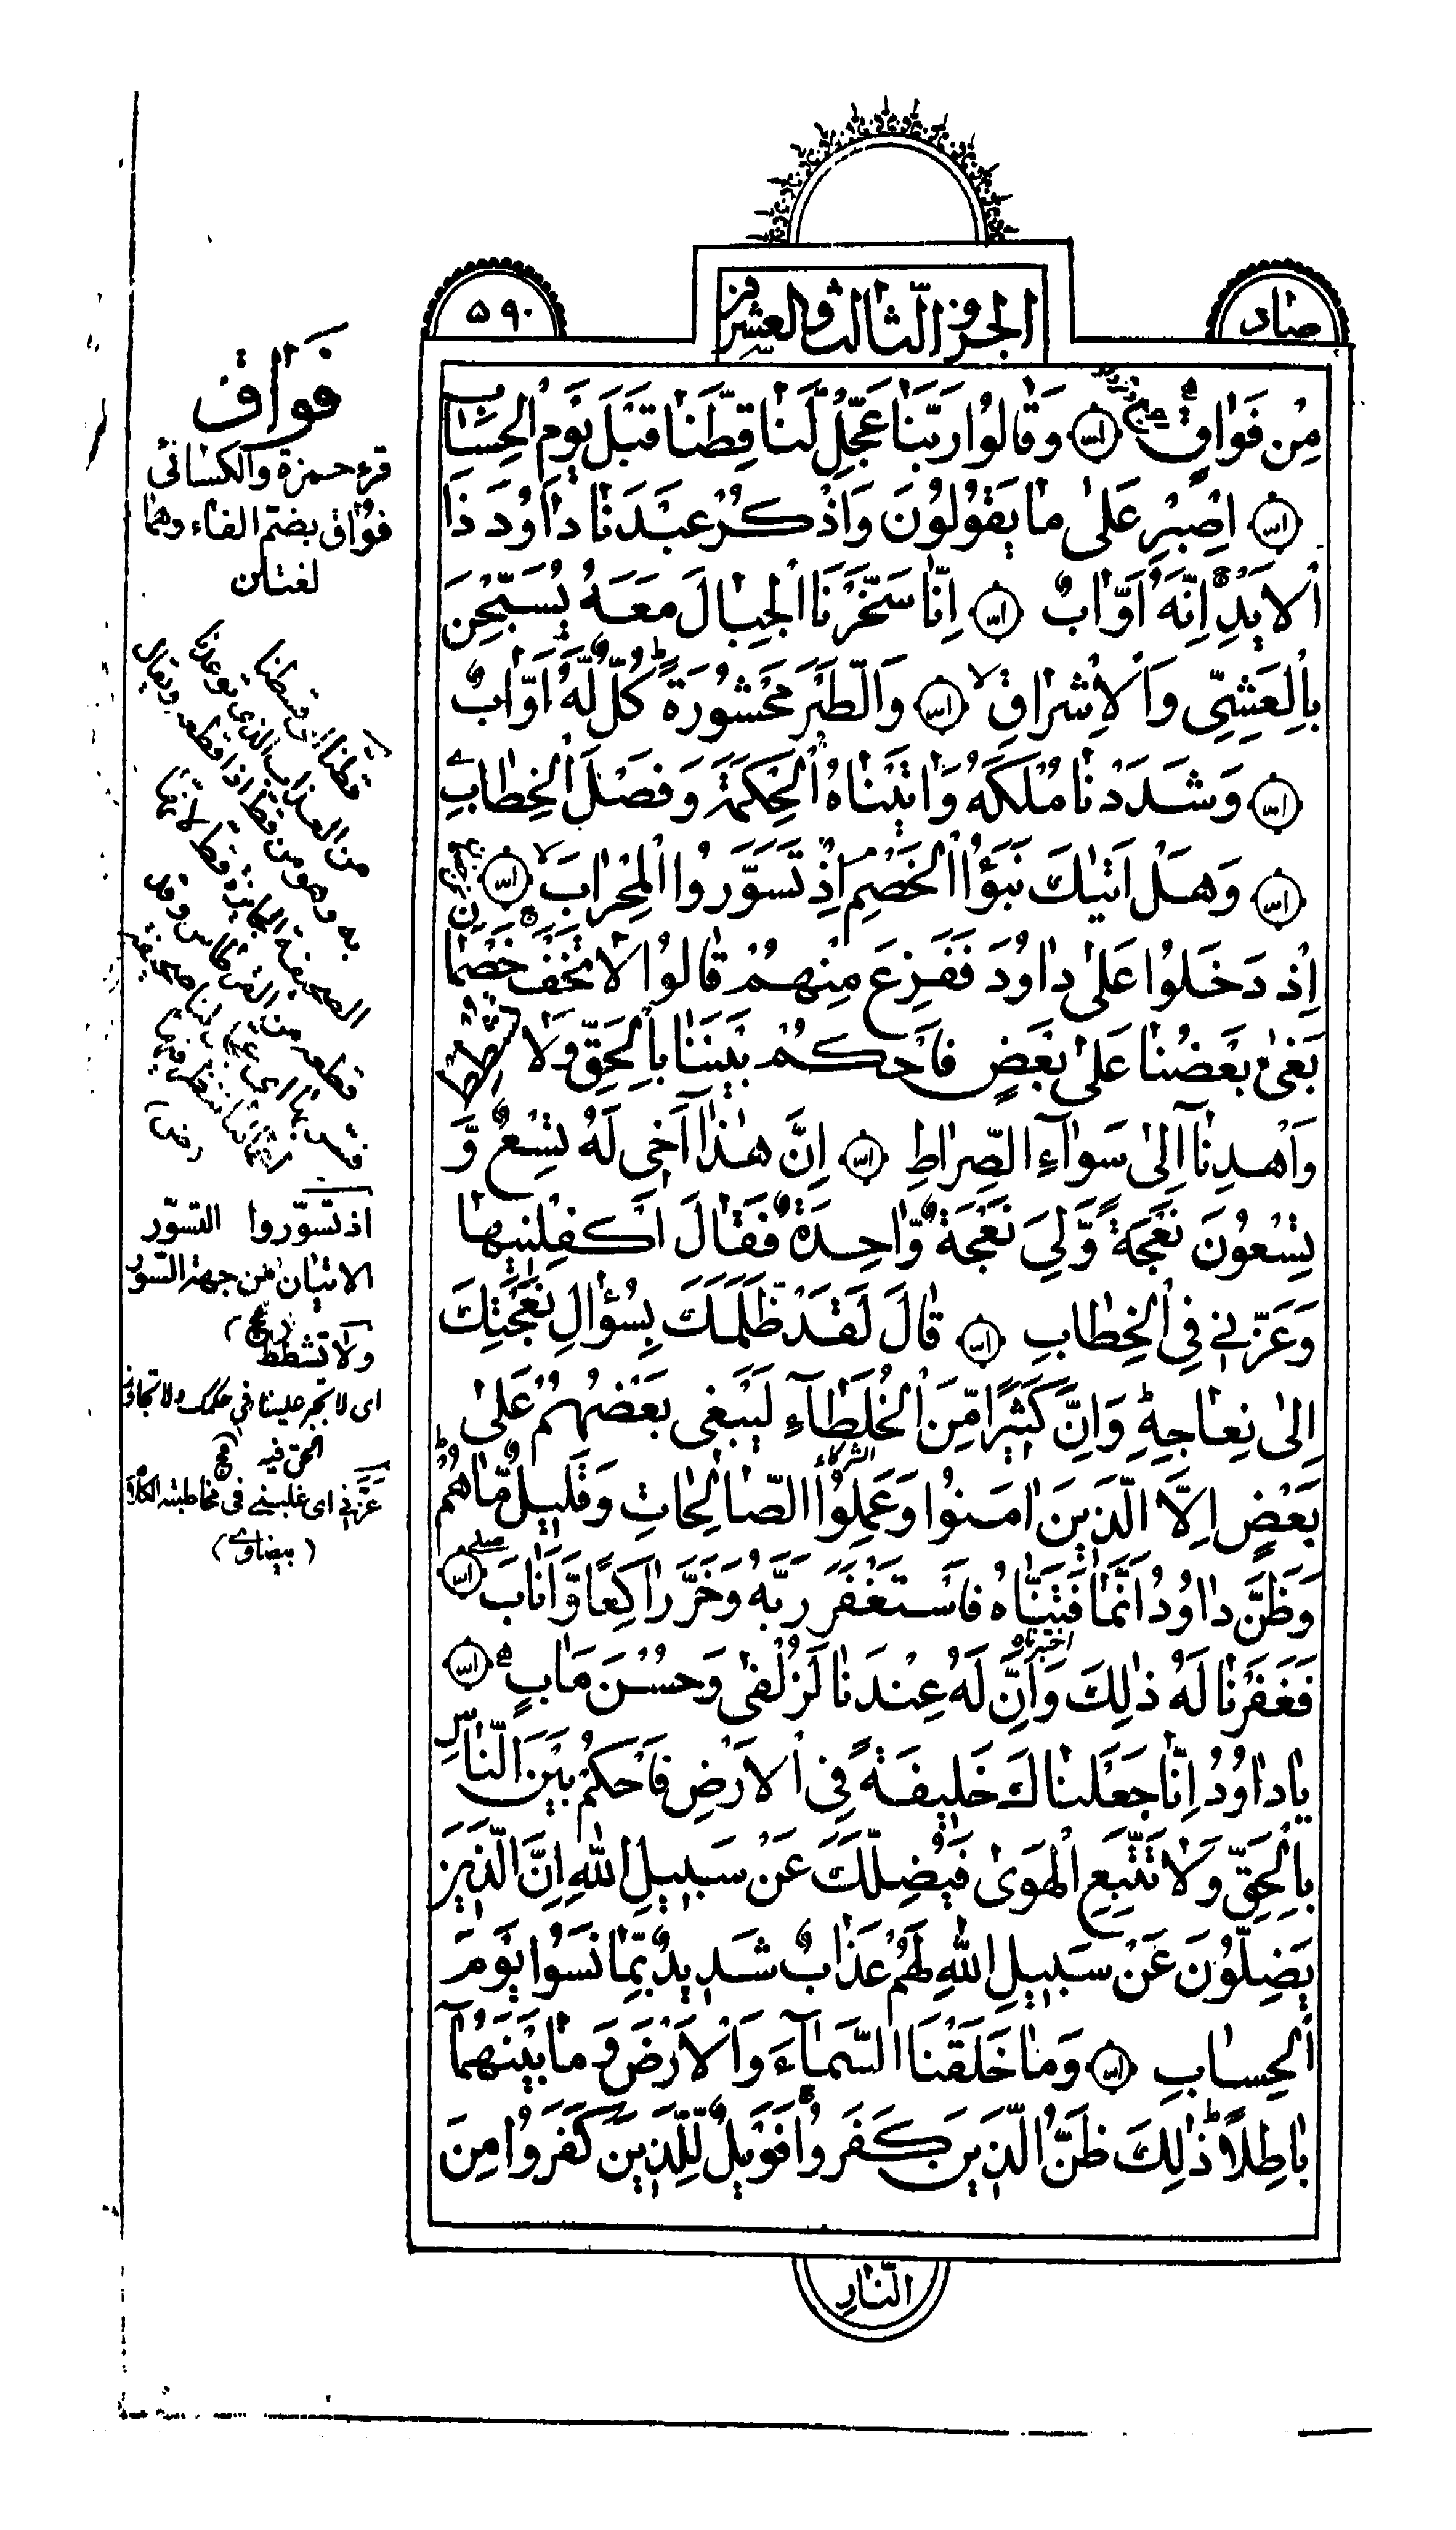 صاد
الجزو الثالث والعشرون
٥٩٠
مِنْ فَوٰاقٍ وَقٰالُوا رَبَّنٰا عَجِّلْ لَّنٰا قِطَّنٰا قَبْلَ يَوْمِ الْحِسٰابِ
اِصْبِرْ عَلىٰ مٰا يَقُوْلُوْنَ وَاذْكُرْ عَبْدَنٰا دٰاوُدَ ذَا
الْاَيْدِ اِنَّهُ اَوّٰابٌ اِنّٰا سَخَّرْنَا الْجِبٰالَ مَعَهُ يُسَبِّحْنَ
بِالْعَشِيِّ وَالْاِشْرٰاقِ وَالطَّيْرَ مَحْشُوْرَةً كُلٌّ لَهُ اَوّٰابٌ
وَشَدَدْنٰا مُلْكَهُ وَاٰتَيْنٰاهُ الْحِكْمَةَ وَفَصْلَ الْخِطٰابِ
وَهَلْ اَتٰيكَ نَبَؤُا الْخَصْمِ اِذْ تَسَوَّرُوا الْمِحْرٰابَ
اِذْ دَخَلُوْا عَلىٰ دٰاوُدَ فَفَزِعَ مِنْهُمْ قٰالُوْا لٰا تَخَفْ خَصْمٰانِ
بَغىٰ بَعْضُنٰا عَلىٰ بَعْضٍ فَاحْكُمْ بَيْنَنٰا بِالْحَقِّ وَلٰا تُشْطِطْ
وَاهْدِنٰا اِلىٰ سَوٰاءِ الصِّرٰاطِ اِنَّ هٰذٰا اَخِي لَهُ تِسْعٌ وَّ
تِسْعُوْنَ نَعْجَةً وَّلِيَ نَعْجَةٌ وّٰاحِدَةٌ فَقٰالَ اَكْفِلْنِيْهٰا
وَعَزَّنِي فِي الْخِطٰابِ قٰالَ لَقَدْ ظَلَمَكَ بِسُؤٰالِ نَعْجَتِكَ
اِلىٰ نِعٰاجِهِ وَاِنَّ كَثِيْرًا مِّنَ الْخُلَطٰاءِ لَيَبْغِي بَعْضُهُمْ عَلىٰ
الشركاء
بَعْضٍ اِلَّا الَّذِيْنَ اٰمَنُوا وَعَمِلُوا الصّٰالِحٰاتِ وَقَلِيْلٌ مّٰا هُمْ
وَظَنَّ دٰاوُدُ اَنَّمٰا فَتَنّٰاهُ فَاسْتَغْفَرَ رَبَّهُ وَخَرَّ رٰاكِعًا وَّاَنٰابَ
اختبرناه
فَغَفَرْنٰا لَهُ ذٰلِكَ وَاِنَّ لَهُ عِنْدَنٰا لَزُلْفىٰ وَحُسْنَ مَاٰبٍ
يٰا دٰاوُدُ اِنّٰا جَعَلْنٰاكَ خَلِيْفَةً فِي الْاَرْضِ فَاحْكُمْ بَيْنَ النّٰاسِ
بِالْحَقِّ وَلٰا تَتَّبِعِ الْهَوىٰ فَيُضِلَّكَ عَنْ سَبِيْلِ اللّٰهِ اِنَّ الَّذِيْنَ
يَضِلُّوْنَ عَنْ سَبِيْلِ اللّٰهِ لَهُمْ عَذٰابٌ شَدِيْدٌ بِمٰا نَسُوْا يَوْمَ
الْحِسٰابِ وَمٰا خَلَقْنَا السَّمٰاءَ وَالْاَرْضَ وَمٰا بَيْنَهُمٰا
بٰاطِلًا ذٰلِكَ ظَنُّ الَّذِيْنَ كَفَرُوْا فَوَيْلٌ لِّلَّذِيْنَ كَفَرُوْا مِنَ
النّٰارِ
فَوٰاقٍ
قرء حمزة والكسائى
فُوٰاق بضم الفاء وهما
لغتان
قطنا اى قسطنا
من العذاب الذى توعدنا
به وهو من قط اذا قطعه ويقال
الصحيفة الجائزة قط لانها
قطعة من القرطاس وقد
اذ تسوّروا التسوّر
الاتيان من جهة السّور
ولا تشطط
اى لا تجر علينا فى حكمك ولا تجاف
الحق فيه
عَزَّنِي اى غلبنى فى مخاطبته الكلام
(بيضاوى)